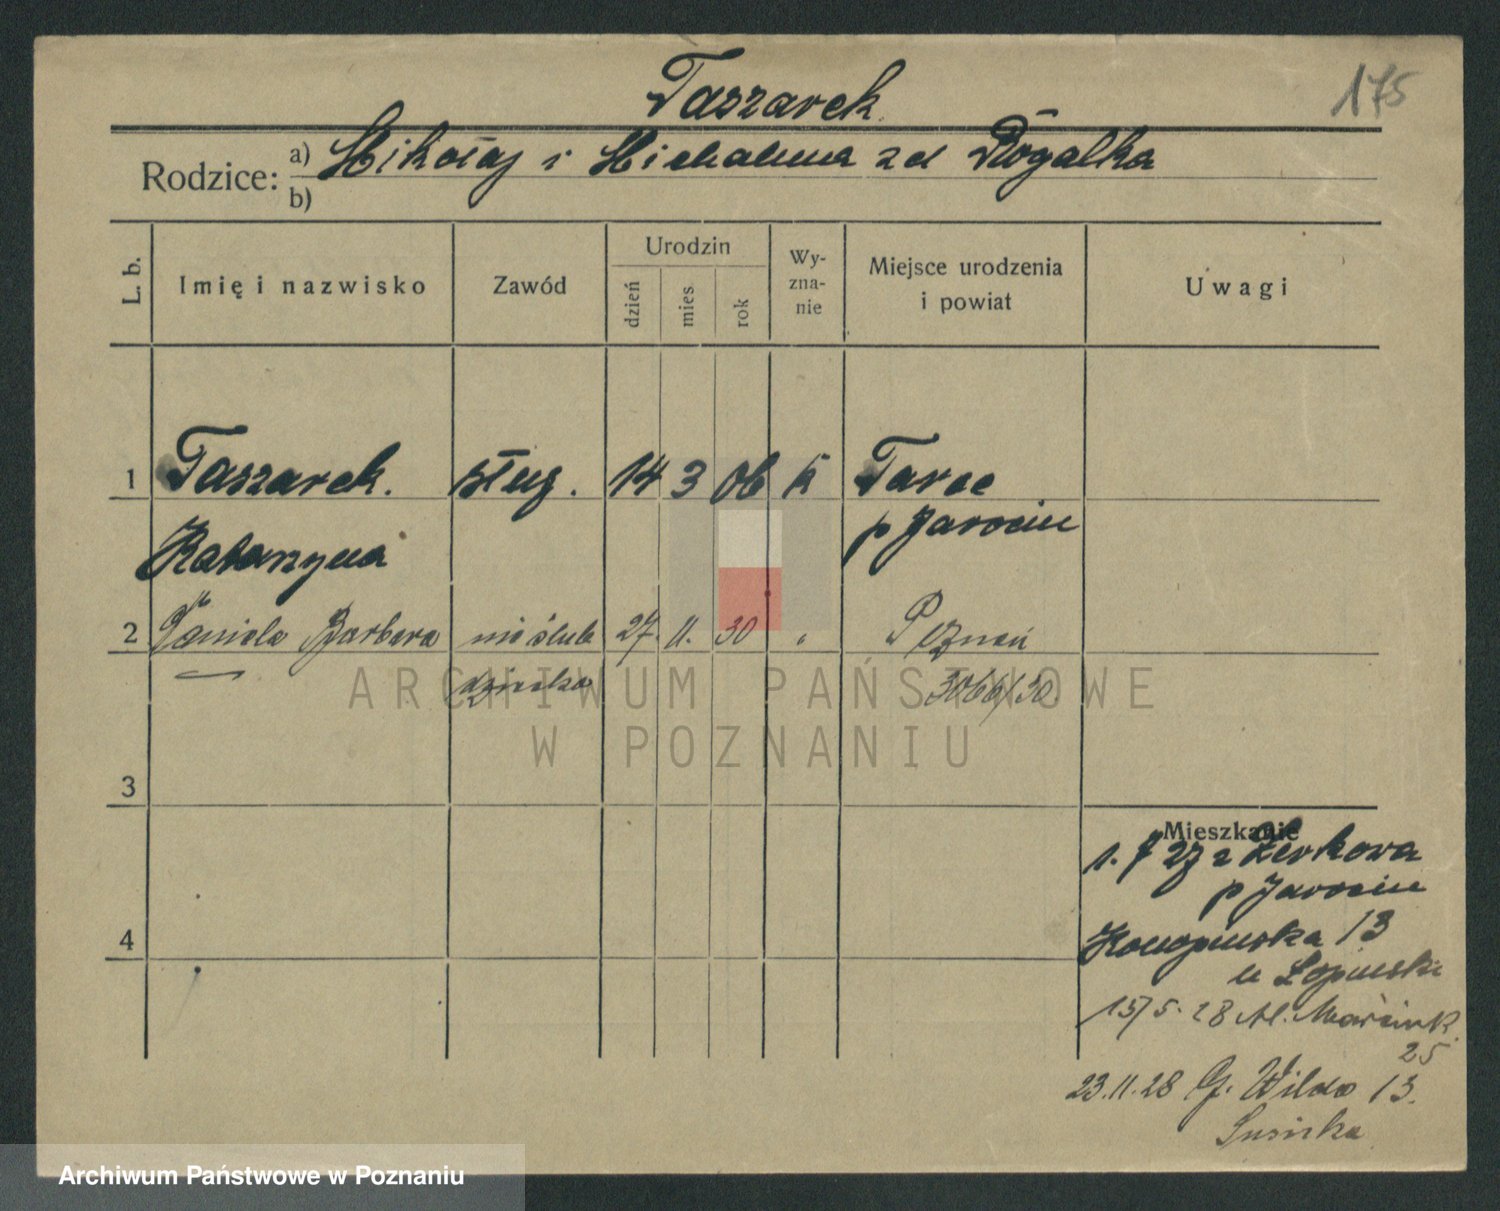 Taszarek
175
Rodzice: a) Mikołaj i Michalina zd Rogalka
b)
L. b. Imię i nazwisko Zawód Urodzin dzień mies. rok Wy-zna-nie Miejsce urodzenia i powiat Uwagi
1 Taszarek. służ. 14 3 06 k Tarce
Katarzyna p Jarocin
2 Daniela Barbara nieślub 27. 11. 30 " Poznań
dziecko 3066/30
ARCHIWUM PAŃSTWOWE
W POZNANIU
3
Mieszkanie
1. 7 27 z Żerkowa
p Jarocin
4
13
15/5. 28 Al. Marcink.
25
23.11.28 G. Wilda 13.
Archiwum Państwowe w Poznaniu